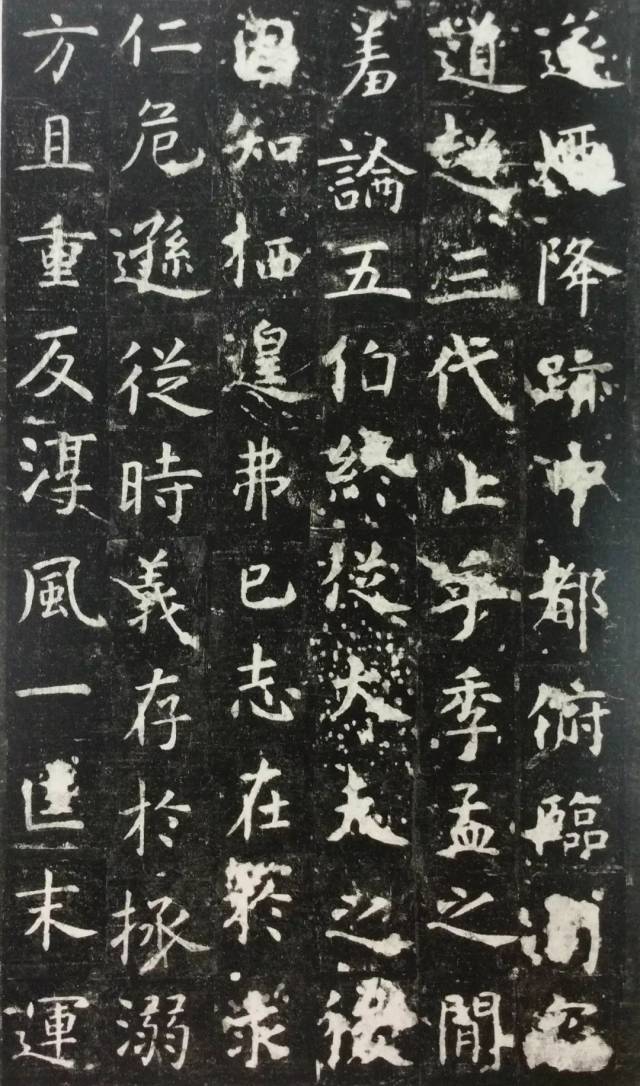 遂降跡中都俯臨司寇
道超三代止乎季孟之間
羞論五伯終從大夫之後
固知栖遑弗已志在於求
仁危遜從時義存於拯溺
方且重反淳風一匡末運